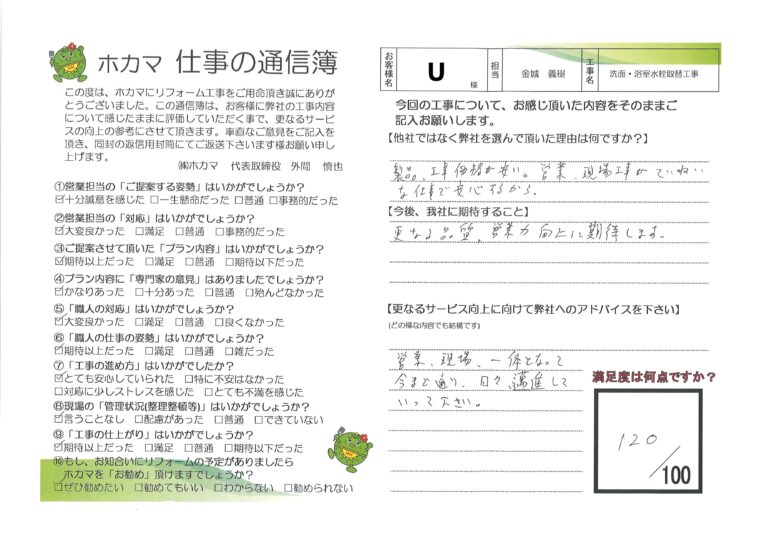 ホカマ 仕事の通信簿
この度は、ホカマにリフォーム工事をご用命頂き誠にありが
とうございました。この通信簿は、お客様に弊社の工事内容
について感じたままに評価していただく事で、更なるサービ
スの向上の参考にさせて頂きます。率直なご意見をご記入を
頂き、同封の返信用封筒にてご返送下さいます様お願い申し
上げます。
㈱ホカマ 代表取締役 外間 慎也
①営業担当の「ご提案する姿勢」はいかがでしょうか?
☑十分誠意を感じた □一生懸命だった □普通 □事務的だった
②営業担当の「対応」はいかがでしょうか?
☑大変良かった □満足 □普通 □事務的だった
③ご提案させて頂いた「プラン内容」はいかがでしょうか?
☑期待以上だった □満足 □普通 □期待以下だった
④プラン内容に「専門家の意見」はありましたでしょうか?
☑かなりあった □十分あった □普通 □殆んどなかった
⑤「職人の対応」はいかがでしょうか?
☑大変良かった □満足 □普通 □良くなかった
⑥「職人の仕事の姿勢」はいかがでしょうか?
☑期待以上だった □満足 □普通 □雑だった
⑦「工事の進め方」はいかがでしたか?
☑とても安心していられた □特に不安はなかった
□対応に少しストレスを感じた □とても不満を感じた
⑧現場の「管理状況(整理整頓等)」はいかがでしょうか?
☑言うことなし □配慮があった □普通 □できていない
⑨「工事の仕上がり」はいかがでしょうか?
☑期待以上だった □満足 □普通 □期待以下だった
⑩もし、お知合いにリフォームの予定がありましたら
ホカマを「お勧め」頂けますでしょうか?
☑ぜひ勧めたい □勧めてもいい □わからない □勧められない
お客様名 U 様 担当 金城 義樹 工事名 洗面・浴室水栓取替工事
今回の工事について、お感じ頂いた内容をそのままご
記入お願いします。
【他社ではなく弊社を選んで頂いた理由は何ですか?】
製品、工事価格が安い。営業、現場工事がていねい
な仕事で安心するから。
【今後、我社に期待すること】
更なる品質、営業力向上に期待します。
【更なるサービス向上に向けて弊社へのアドバイスを下さい】
(どの様な内容でも結構です)
営業、現場、一体となって
今まで通り、日々、邁進して
いって下さい。
満足度は何点ですか?
120
/100